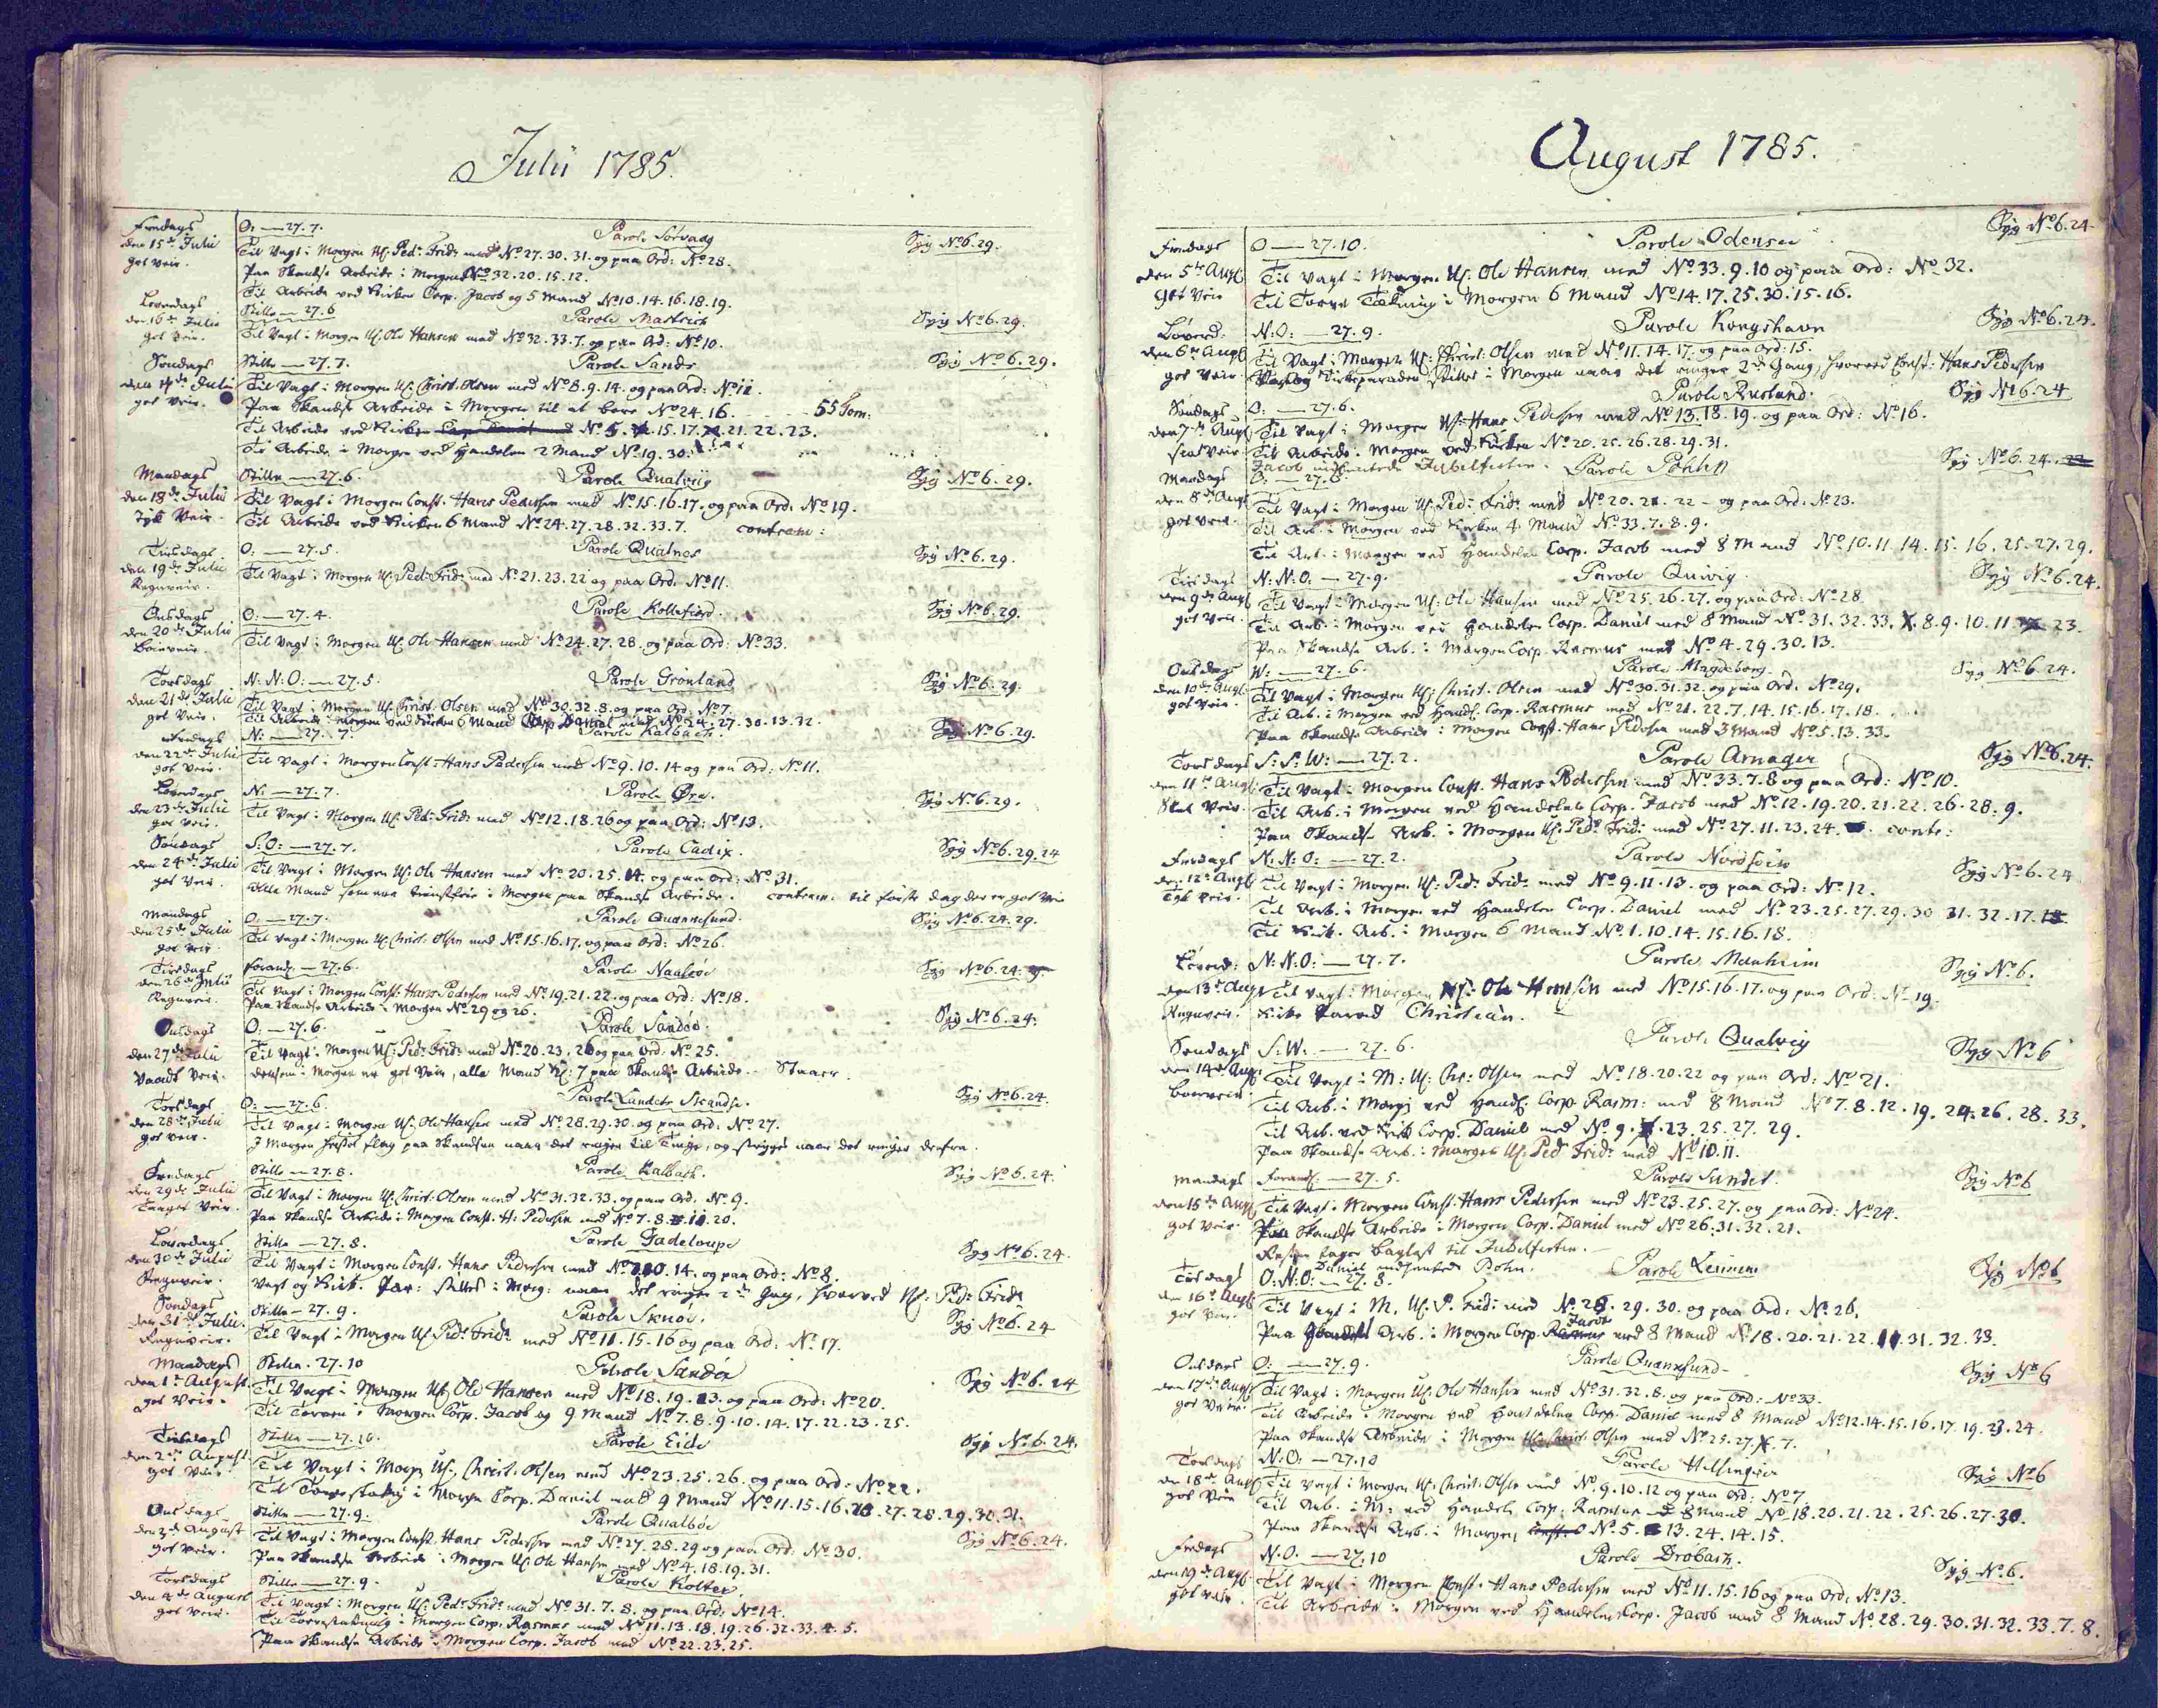 Julii 1785.
Fredags
den 15de Julii
got Veir.
O: — 27.7.
Parole Sörvaag
Syg No 6.29.
Til Vagt i Morgen U: Ped: Frid: med No 27.30.31. og paa Ord: No 28.
Paa Skandse Arbeide i Morgen No 32.20.15.12.
Til Arbeide ved Kirken Corp. Jacob og 5 Mand No 10.14.16.18.19.
Löverdags
den 16de Julii
got Veir.
Stille — 27.6
Parole Mastrich
Syg No 6.29.
Til Vagt i Morgen U: Ole Hansen med No 32.33.7. og paa Ord: No 10.
Söndags
den 17de Julii
got Veir.
Stille — 27.7.
Parole Sands
Syg No 6.29.
Til Vagt i Morgen U: Christ. Olsen med No 8.9.14. og paa Ord: No 11.
Paa Skandse Arbeide i Morgen til at bere No 24.16.
Til Arbeide ved Kirken No 5. 15.17. 21.22.23.
Til Arbeide i Morgen ved Handelen 2 Mand No 19.30.
Mandags
den 18de Julii
Tyk Veir.
Stille — 27.6.
Parole Qualviig
Syg No 6.29.
Til Vagt i Morgen Const. Hans Pedersen med No 15.16.17. og paa Ord. No 19.
Til Arbeide ved Kirken 6 Mand No 24.27.28.32.33.7. contram:
Tirsdags
den 19de Julii
Regnveir.
O: — 27.5.
Parole Qualnes
Syg No 6.29.
Til Vagt i Morgen U: Ped: Frid: med No 21.23.22 og paa Ord. No 11.
Onsdags
den 20de Julii
O: — 27.4.
Parole Kollefiord.
Syg No 6.29.
Til Vagt i Morgen U: Ole Hansen med No 24.27.28. og paa Ord: No 33.
Torsdags
den 21de Julii
got Veir.
N:N:O: — 27.5.
Parole Grönland
Syg No 6.29.
Til Vagt i Morgen U: Christ. Olsen med No 30.32.8. og paa Ord: No 7.
Til Arbeide i Morgen ved Kirken 6 Mand Corp Daniel med No 24.27.30.13.32.
Fredags
den 22de Julii
got Veir.
N: — 27.7.
Parole Kalbach.
Syg No 6.29.
Til Vagt i Morgen Const: Hans Pedersen med No 9.10.14 og paa Ord: No 11.
Löverdags
den 23de Julii
got Veir.
N: — 27.7.
Parole Öre.
Syg No 6.29.
Til Vagt i Morgen U: Ped: Frid: med No 12.18.26 og paa Ord: No 13.
Söndags
den 24de Julii
got Veir.
S:O: — 27.7.
Parole Cadix.
Syg No 6.29.24
Til Vagt i Morgen U: Ole Hansen med No 20.25.14. og paa Ord: No 31.
Alle Mand som ere tienstfrie i Morgen paa Skandse Arbeide. contram: til förste dag der er got Veir
Mandags
den 25de Julii
got Veir.
O: — 27.7.
Parole Quannesund.
Syg No 6.24.29.
Til Vagt i Morgen U: Christ. Olsen med No 15.16.17. og paa Ord: No 26.
Tirsdags
den 26de Julii
Regnveir.
forand: — 27.6.
Parole Naalsöe
Syg No 6.24.
Til Vagt i Morgen Const: Hans Pedersen med No 19.21.22. og paa Ord: No 18.
Paa Skandse Arbeide i Morgen No 29 og 26.
Onsdags
den 27de Julii
Vaadt Veir.
O: — 27.6.
Parole Sandöe.
Syg No 6.24.
Til Vagt i Morgen U: Ped: Frid: med No 20.23.26 og paa Ord: No 25.
dersom i Morgen er got Veir, alle Mand Kl: 7 paa Skandse Arbeide.
Torsdags
den 28de Julii
got Veir.
O: — 27.6
Parole Landets Skandse.
Syg No 6.24.
Til Vagt i Morgen U: Ole Hansen med No 28.29.30. og paa Ord: No 27.
I Morgen heiset flag paa Skandsen naar det ringer til Tinge, og stryges naar det ringer derfra.
Fredags
den 29de Julii
Taaget Veir.
Stille — 27.8.
Parole Kalbach.
Syg No 6.24.
Til Vagt i Morgen U: Christ: Olsen med No 31.32.33. og paa Ord. No 9.
Paa Skandse Arbeide i Morgen Const. H: Pedersen med No 7.8. 11.20.
Löverdags
den 30de Julii
Regnveir.
Stille — 27.8.
Parole Gadeloupe
Syg No 6.24.
Til Vagt i Morgen Const. Hans Pedersen med No 10.14. og paa Ord: No 8.
Vagt og Kirk. Par: stilles i Morg: naar det ringer 2de Gang, hvorved U: Ped: Frid:
Söndags
den 31de Julii.
Regnveir.
Stille — 27.9.
Parole Skuöe.
Syg No 6.24
Til Vagt i Morgen U: Ped: Frid: med No 11.15.16 og paa Ord: No 17.
Mandags
den 1te August.
got Veir.
Stille. 27.10
Parole Sandöe
Syg No 6.24
Til Vagt i Morgen U: Ole Hansen med No 18.19.13. og paa Ord: No 20.
Til Torven i Morgen Corp. Jacob og 9 Mand No 7.8.9.10.14.17.22.23.25.
Tirsdags
den 2den August
got Veir.
Stille — 27.10.
Parole Eide
Syg No 6.24.
Til Vagt i Morgen U: Christ. Olsen med No 23.25.26. og paa Ord: No 22.
Til Torvestakning i Morgen Corp. Daniel med 9 Mand No 11.15.16. 27.28.29.30.31.
Onsdags
den 3de August
got Veir.
Stille — 27.9.
Parole Qualböe
Syg No 6.24.
Til Vagt i Morgen Const. Hans Pedersen med No 27.28.29 og paa Ord: No 30.
Paa Skandse Arbeide i Morgen U: Ole Hansen med No 4.18.19.31.
Torsdags
den 4de August
got Veir.
Stille — 27.9.
Parole Kolter.
Til Vagt i Morgen U: Ped: Frid: med No 31.7.8. og paa Ord: No 14.
Til Torvestakning i Morgen Corp. Rasmus med No 11.13.18.19.26.32.33.4.5.
Paa Skandse Arbeide i Morgen Corp. Jacob med No 22.23.25.
August 1785.
Fredags
den 5te Aug:
got Veir
O — 27.10.
Parole Odensee
Syg No 6.24.
Til Vagt i Morgen U: Ole Hansen med No 33.9.10 og paa Ord: No 32.
Til Torve Takning i Morgen 6 Mand No 14.17.25.30.15.16.
Löverd:
den 6te Aug:
got Veir.
N:O: — 27.9.
Parole Kongshavn
Syg No 6.24.
Til Vagt i Morgen U: Christ: Olsen med No 11.14.17. og paa Ord: 15.
Kirkeparaden stilles i Morgen naar det ringer 2de Gang, hvorved Const: Hans Pedersen
Söndags
den 7de Aug:
O: — 27.6.
Parole Rusland.
Syg No 6.24
Til Vagt i Morgen U: Hans Pedersen med No 13.18.19. og paa Ord: No 16.
Til Arbeide i Morgen ved Kirken No 20.25.26.28.29.31.
Jacob
Mandags
den 8de Aug:
got Veir.
O: — 27.6.
Parole Pohlen
Syg No 6.24.
Til Vagt i Morgen U: Ped: Frid: med No 20.21.22 — og paa Ord: No 23.
Til Arb. i Morgen ved Kirken 4 Mand No 33.7.8.9.
Til Arb. i Morgen ved Handelen Corp. Jacob med 8 Mand No 10.11.14.15.16.25.27.29.
Tirsdags
den 9de Aug:
got Veir.
N:N:O: — 27.9.
Parole Quivig.
Syg No 6.24.
Til Vagt i Morgen U: Ole Hansen med No 25.26.27. og paa Ord: No 28
Til Arb. i Morgen ved Handelen Corp. Daniel med 8 Mand No 31.32.33. 8.9.10.11. 23.
Paa Skandse Arb. i Morgen Corp. Rasmus med No 4.29.30.13.
Onsdags
den 10de Aug:
got Veir.
W: — 27.6.
Parole Magdeborg.
Syg No 6.24.
Til Vagt i Morgen U: Christ. Olsen med No 30.31.32. og paa Ord. No 29.
Til Arb. i Morgen ved Handl. Corp. Rasmus med No 21.22.7.14.15.16.17.18.
Paa Skandse Arbeide i Morgen Const. Hans Pedersen med 3 Mand No 5.13.33.
Torsdags
den 11te Aug:
S:S:W: — 27.2.
Parole Amager
Syg No 6.24.
Til Vagt i Morgen Const. Hans Pedersen med No 33.7.8 og paa Ord: No 10.
Til Arb. i Morgen ved Handelen Corp. Jacob med No 12.19.20.21.22.26.28.9.
Paa Skandse Arb. i Morgen U: Ped: Frid: med No 27.11.23.24. contr:
Fredags
den 12te Aug:
Tyk Veir.
N:N:O: — 27.2.
Parole Nordsöen
Syg No 6.24
Til Vagt i Morgen U: Ped: Frid: med No 9.11.13. og paa Ord: No 12.
Til Arb. i Morgen ved Handelen Corp. Daniel med No 23.25.27.29.30 31.32.17.
Til Kirk. Arb. i Morgen 6 Mand No 1.10.14.15.16.18.
Löverd:
den 13de Aug:
Regnveir.
N:N:O: — 27.7.
Parole Manheim
Syg No 6.
Til Vagt i Morgen U: Ole Hansen med No 15.16.17. og paa Ord: No 19.
Kirke Parad Christian.
Söndags
den 14de Aug:
S:W. — 27.6.
Parole Qualvig
Syg No 6
Til Vagt i M: U: Chr: Olsen med No 18.20.22 og paa Ord: No 21.
Til Arb. i Morg: ved Handl. Corp. Rasm: med 8 Mand No 7.8.12.19.24.26.28.33.
Til Arb. ved Kirk Corp. Daniel med No 9. 23.25.27.29.
Paa Skandse Arb. i Morgen U: Ped: Frid: med No 10.11.
Mandags
den 15de Aug:
got Veir.
forand: — 27.5.
Parole Sundet.
Syg No 6
Til Vagt i Morgen Const: Hans Pedersen med No 23.25.27. og paa Ord: No 24.
Paa Skandse Arbeide i Morgen Corp. Daniel med No 26.31.32.21.
Tirsdags
den 16de Aug:
got Veir.
O:N:O: — 27.8.
Syg No 6
Til Vagt i M. U: P. Frid: med No 28.29.30. og paa Ord: No 26.
Arb. i Morgen Corp. Jacob med 8 Mand No 18.20.21.22. 31.32.33.
Onsdags
den 17de Aug:
got Veir.
O: — 27.9.
Parole Quannesund
Syg No 6
Til Vagt i Morgen U: Ole Hansen med No 31.32.8. og paa Ord: No 33.
Til Arbeide i Morgen ved Handelen Corp. Daniel med 8 Mand No 12.14.15.16.17.19.23.24.
Paa Skandse Arbeide i Morgen U: Christ. Olsen med No 25.27. 7.
Torsdags
den 18de Aug:
got Veir
N:O: — 27.10
Parole Helsingöer
Syg No 6
Til Vagt i Morgen U: Christ: Olsen med No 9.10.12 og paa Ord: No 7
Til Arb. i M: ved Handeln Corp: Rasmus 8 Mand No 18.20.21.22.25.26.27.30.
Paa Skandse Arb. i Morgen No 5. 13.24.14.15.
Fredags
den 19de Aug:
got Veir.
N.O. — 27.10
Parole Drobach.
Syg No 6.
Til Vagt i Morgen Const. Hans Pedersen med No 11.15.16 og paa Ord: No 13.
Til Arbeide i Morgen ved Handelen Corp. Jacob med 8 Mand No 28.29.30.31.32.33.7.8.